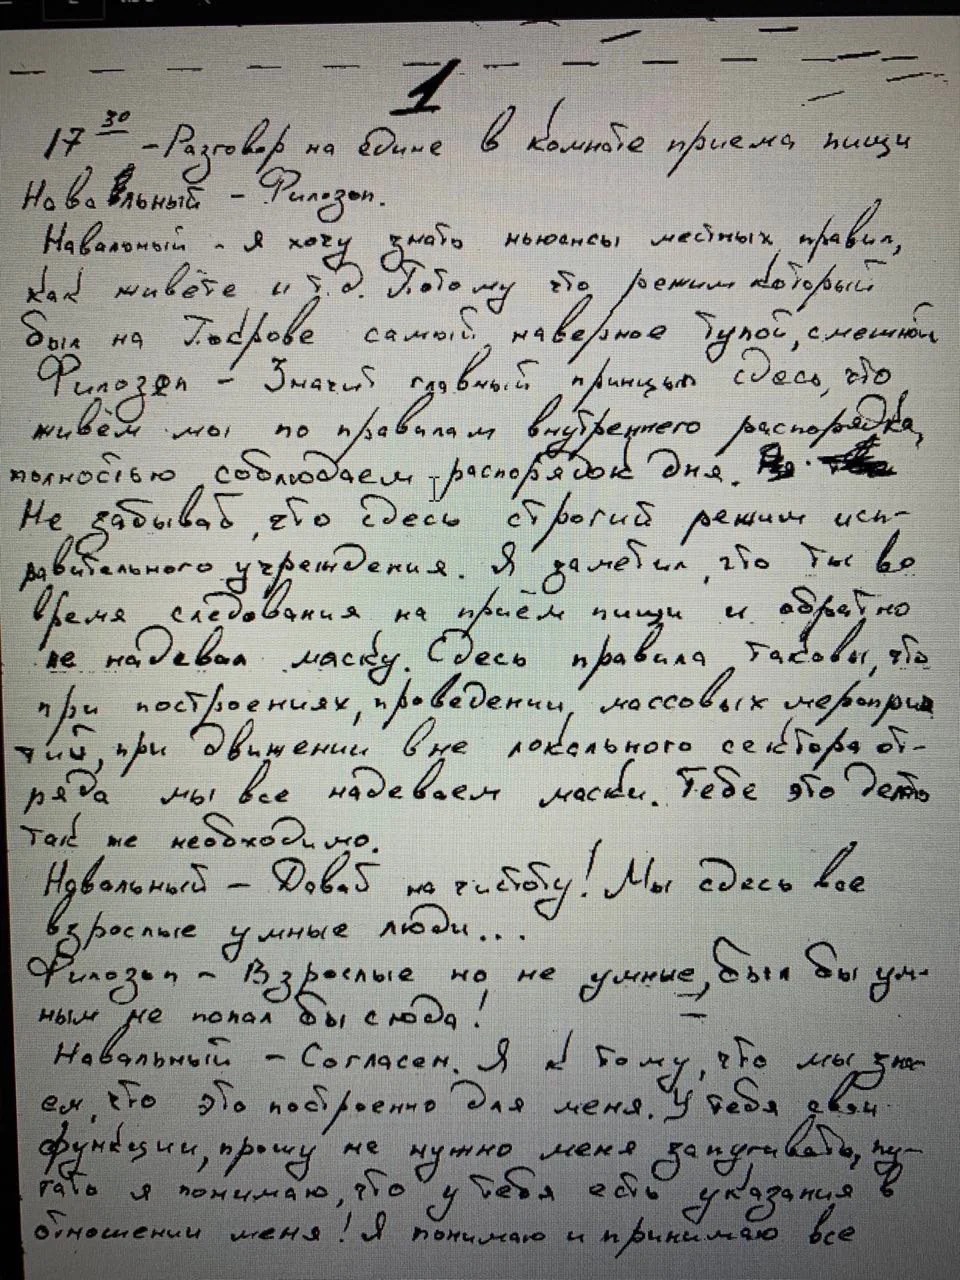 1
17 30 - Разговор на едине в комнате приема пищи
Навальный - Филозоп.
Навальный - я хочу знать ньюансы местных правил,
как живёте и т.д. Потому что режим который
был на Покрове самый наверное тупой, смешной
Филозоп - Значит главный принцып здесь, что
живём мы по правилам внутреннего распорядка,
полностью соблюдаем распорядок дня.
Не забывай, что здесь строгий режим исп-
равительного учреждения. Я заметил, что ты во
время следования на приём пищи и обратно
не надевал маску. Здесь правила таковы, что
при построениях, проведении, массовых меропри
тий, при движении вне локального сектора от-
ряда мы все надеваем маски. Тебе это делать
так же необходимо.
Навальный - Давай на чистоту! Мы здесь все
взрослые умные люди...
Филозоп - Взрослые но не умные, был бы ум-
ным не попал бы сюда!
Навальный - Согласен. Я к тому, что мы зна-
ем, что это построенно для меня. У тебя свои
функции, прошу не нужно меня запугивать, пу-
гать я понимаю, что у тебя есть указания в
отношении меня! Я понимаю и принимаю все